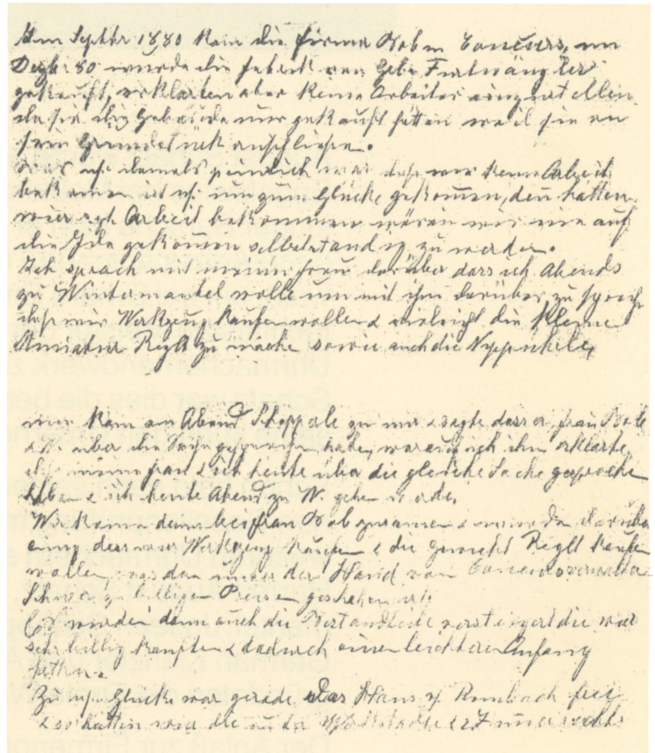 Im Septbr 1880 kam die Firma Bob in Concurs, im
Dezb. 80 wurde die Fabrik von Gebr. Furtwängler
gekauft, erklärten aber keine Arbeiter einzustellen
da sie die Gebäude nur gekauft hätten weil sie an
ihren Grundstück anschliessen.
Was uns damals peinlich war dass wir keine Arbeit
bekamen ist uns nun zum Glücke gekommen, den hätten
wir Arbeit bekommen wären wir nie auf
die Idee gekommen selbstständig zu werden.
Ich sprach mit meiner Frau darüber dass ich Abends
zu Wintermantel wolle um mit ihm darüber zu sprechen
dass wir Werkzeug kaufen wollen & die kleine
Amriatur Reglt zu machen sowie auch die
nun kam am Abend zu mir & sagte dass er, Frau Bob
& W. über die Sache gesprochen haben, worauf ich ihm erklärte
dass meine Frau & ich heute über die gleiche Sache gesprochen
haben & ich heute Abend zu W. gehen werde.
Wir kamen dann bei Frau Bob zusammen & wurden darüber
einig dass wir Werkzeug kaufen & die Reglt kaufen
wollen, was dan unter der Hand vom Concursverwalter
zu billigen Preisen geschehen
Es wurden dann auch die Bestandteile versteigert die wir
sehr billig kauften & dadurch einen leichteren Anfang
hatten.
Zu uns. Glücke war gerade das Haus v. Rombach frei
& so hatten wir die